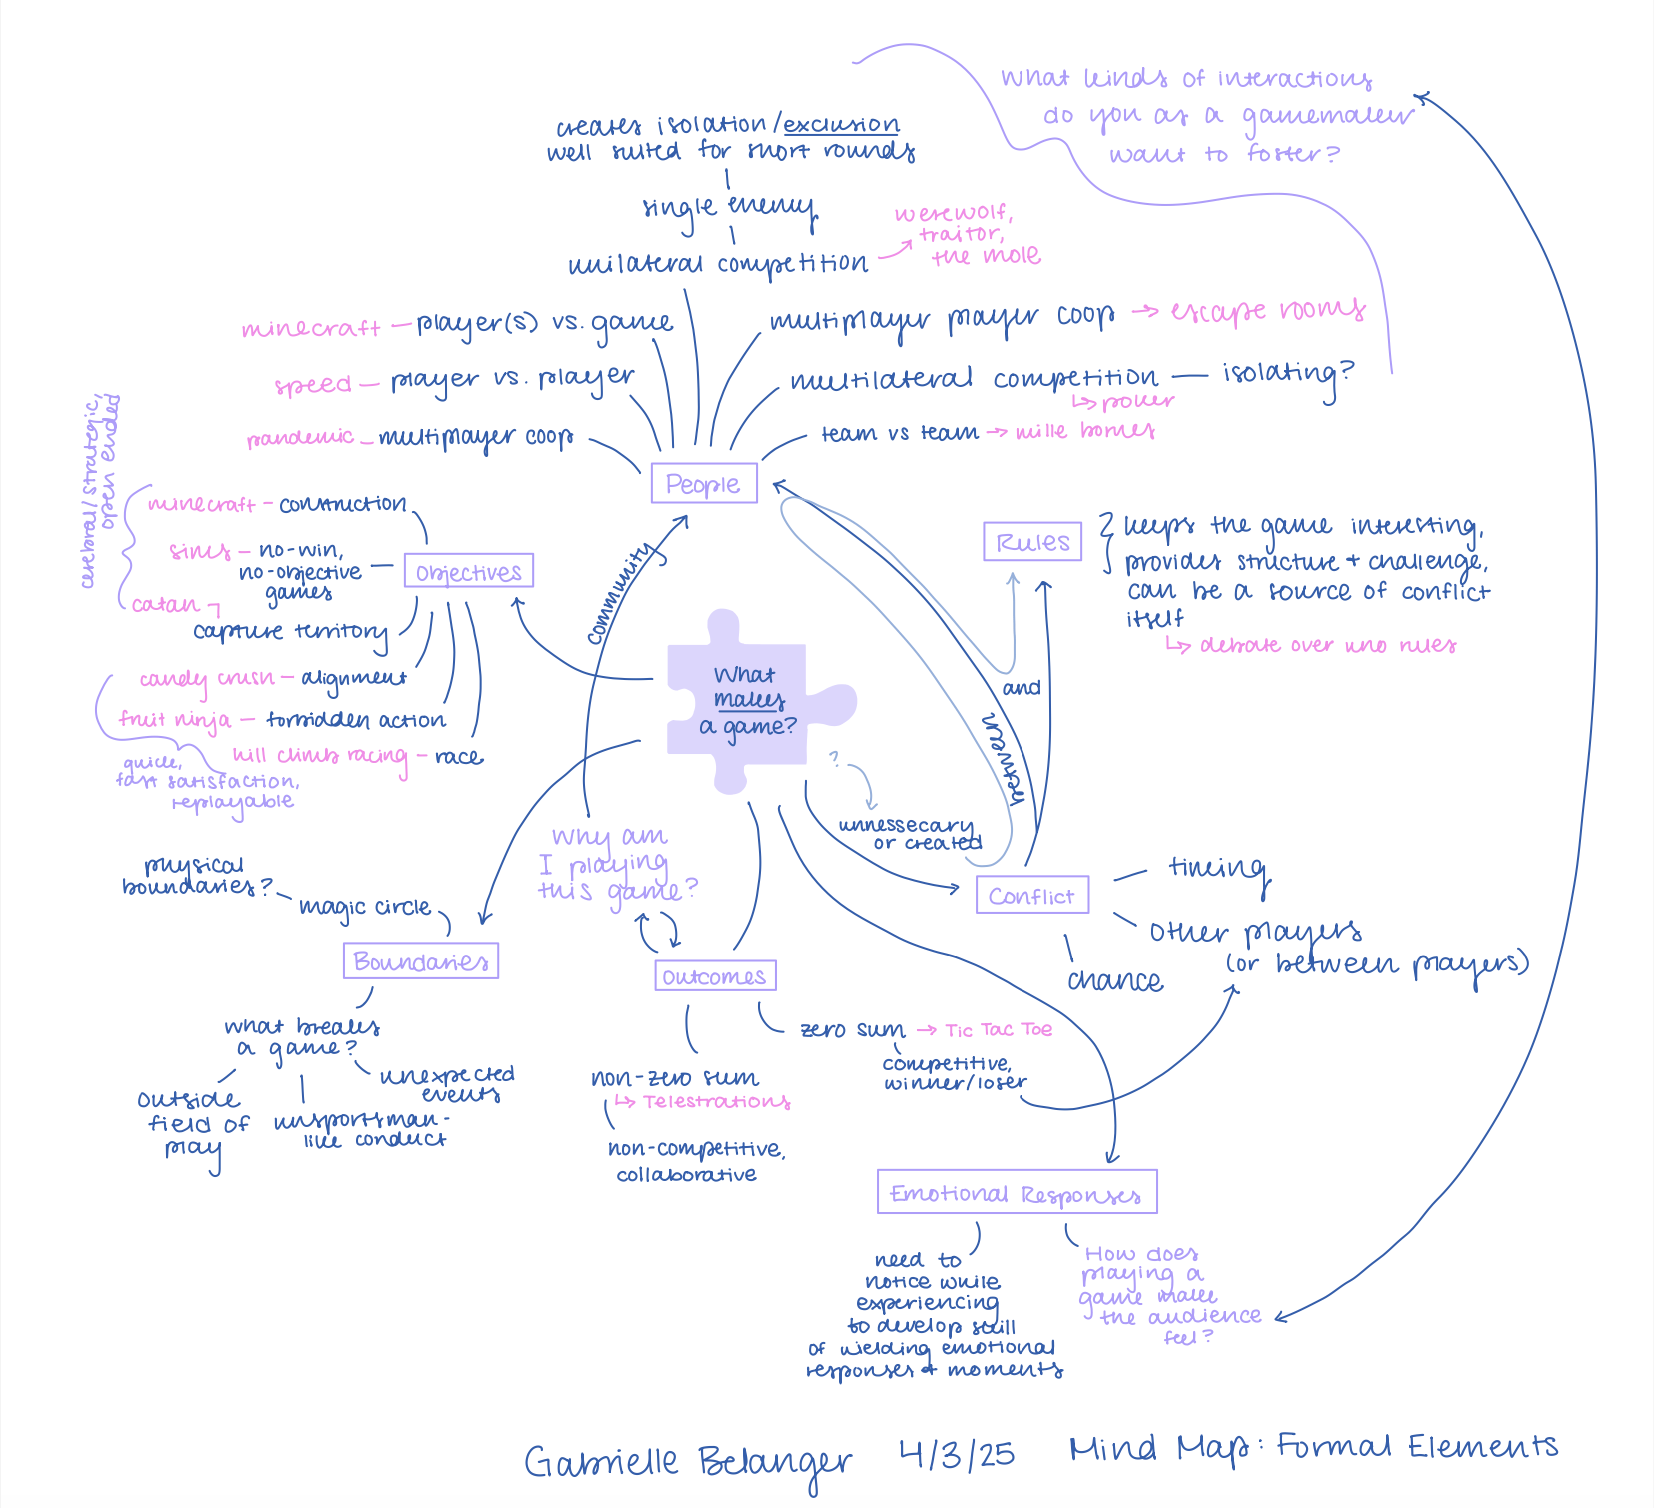 What kinds of interactions
do you as a gamemaker
want to foster?
creates isolation/exclusion
well suited for short rounds
single enemy
unilateral competition
werewolf,
traitor,
the mole
minecraft — player(s) vs. game
multiplayer player coop → escape rooms
speed — player vs. player
multilateral competition — isolating?
↳ poker
pandemic — multiplayer coop
team vs team → mille bornes
People
cerebral/strategic,
open ended
minecraft - construction
sims - no-win,
no-objective
games
catan
capture territory
Objectives
candy crush - alignment
fruit ninja - forbidden action
hill climb racing - race
quick,
fast satisfaction,
replayable
community
Rules
keeps the game interesting,
provides structure + challenge,
can be a source of conflict
itself
↳ debate over uno rules
What
makes
a game?
and
between
?
unnessecary
or created
Why am
I playing
this game?
physical
boundaries?
magic circle
Boundaries
what breaks
a game?
outside
field of
play
unsportsman-
like conduct
unexpected
events
Outcomes
zero sum → Tic Tac Toe
competitive,
winner/loser
non-zero sum
↳ Telestrations
non-competitive,
collaborative
Conflict
timing
other players
(or between players)
chance
Emotional Responses
need to
notice while
experiencing
to develop skill
of wielding emotional
responses + moments
How does
playing a
game make
the audience
feel?
Gabrielle Belanger 4/3/25 Mind Map: Formal Elements